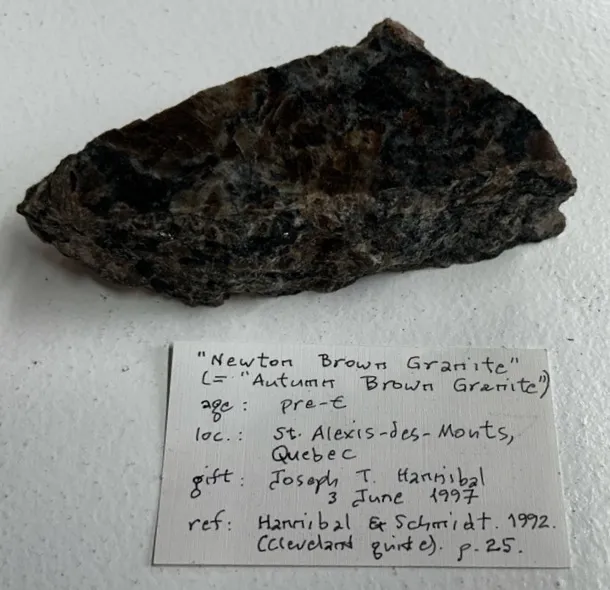 "Newton Brown Granite"
(= "Autumn Brown Granite")
age: pre-Є
loc.: St. Alexis-des-Monts,
Quebec
gift: Joseph T. Hannibal
3 June 1997
ref: Hannibal & Schmidt. 1992.
(Cleveland guide). p. 25.